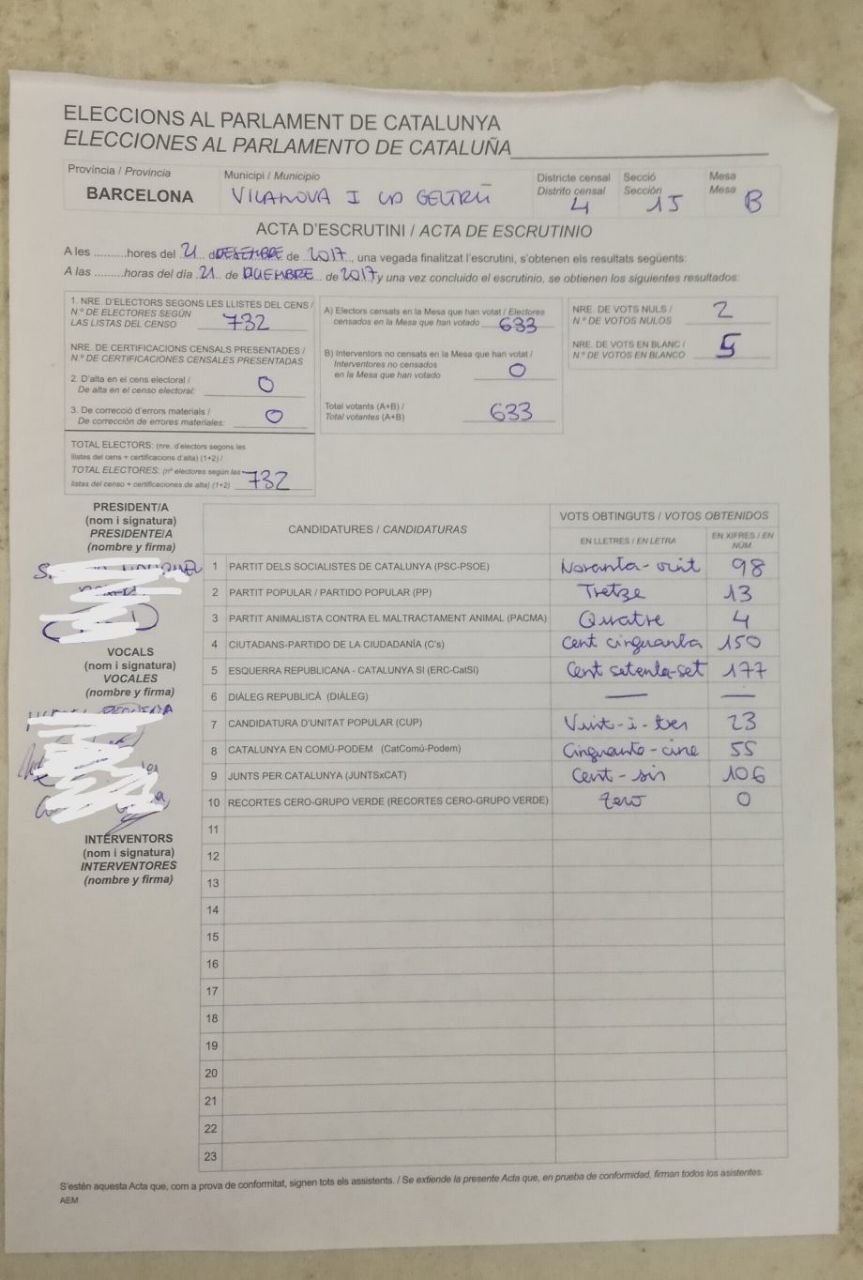 ELECCIONS AL PARLAMENT DE CATALUNYA
ELECCIONES AL PARLAMENTO DE CATALUÑA
Província / Provincia
BARCELONA
Municipi / Municipio
VILANOVA I LA GELTRÚ
Districte censal
Distrito censal
4
Secció
Sección
15
Mesa
Mesa
B
ACTA D'ESCRUTINI / ACTA DE ESCRUTINIO
A les .........hores del 21 d DESEMBRE de 2017, una vegada finalitzat l'escrutini, s'obtenen els resultats següents:
A las .........horas del día 21 de DICIEMBRE de 2017 y una vez concluido el escrutinio, se obtienen los siguientes resultados:
1. NRE. D'ELECTORS SEGONS LES LLISTES DEL CENS /
N.º DE ELECTORES SEGÚN
LAS LISTAS DEL CENSO 732
NRE. DE CERTIFICACIONS CENSALS PRESENTADES /
N.º DE CERTIFICACIONES CENSALES PRESENTADAS
2. D'alta en el cens electoral /
De alta en el censo electoral: 0
3. De correcció d'errors materials /
De corrección de errores materiales: 0
TOTAL ELECTORS: (nre. d'electors segons les
llistes del cens + certificacions d'alta) (1+2) /
TOTAL ELECTORES: (nº electores según las
listas del censo + certificaciones de alta) (1+2) 732
A) Electors censats en la Mesa que han votat / Electores
censados en la Mesa que han votado 633
B) Interventors no censats en la Mesa que han votat /
Interventores no censados
en la Mesa que han votado 0
Total votants (A+B) /
Total votantes (A+B) 633
NRE. DE VOTS NULS /
N.º DE VOTOS NULOS 2
NRE. DE VOTS EN BLANC /
Nº DE VOTOS EN BLANCO 5
PRESIDENT/A
(nom i signatura)
PRESIDENTE/A
(nombre y firma)
VOCALS
(nom i signatura)
VOCALES
(nombre y firma)
INTERVENTORS
(nom i signatura)
INTERVENTORES
(nombre y firma)
CANDIDATURES / CANDIDATURAS
VOTS OBTINGUTS / VOTOS OBTENIDOS
EN LLETRES / EN LETRA
EN XIFRES / EN
NÚM.
1 PARTIT DELS SOCIALISTES DE CATALUNYA (PSC-PSOE) Noranta-vuit 98
2 PARTIT POPULAR / PARTIDO POPULAR (PP) Tretze 13
3 PARTIT ANIMALISTA CONTRA EL MALTRACTAMENT ANIMAL (PACMA) Quatre 4
4 CIUTADANS-PARTIDO DE LA CIUDADANÍA (C's) Cent cinquanta 150
5 ESQUERRA REPUBLICANA - CATALUNYA SI (ERC-CatSI) Cent setenta-set 177
6 DIÀLEG REPUBLICÀ (DIÀLEG) — —
7 CANDIDATURA D'UNITAT POPULAR (CUP) Vint-i-tres 23
8 CATALUNYA EN COMÚ-PODEM (CatComú-Podem) Cinquanta-cinc 55
9 JUNTS PER CATALUNYA (JUNTSxCAT) Cent-sis 106
10 RECORTES CERO-GRUPO VERDE (RECORTES CERO-GRUPO VERDE) Zero 0
11
12
13
14
15
16
17
18
19
20
21
22
23
S'estén aquesta Acta que, com a prova de conformitat, signen tots els assistents. / Se extiende la presente Acta que, en prueba de conformidad, firman todos los asistentes.
AEM